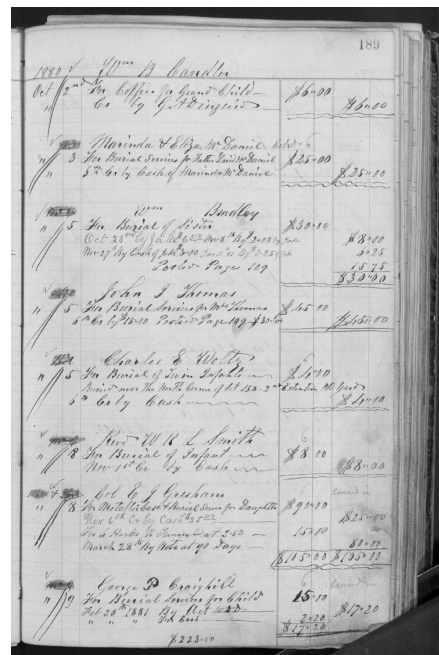 189
1880 Wm B Candler
Oct 2nd For Coffin for Grand Child $6.00
" Cr by $6.00
Marinda & Eliza McDaniel
" 3 For Burial Services for Father David McDaniel $25.00
5th Cr by Cash of Marinda McDaniel $25.00
Wm Bradley
" 5 For Burial of Sister $30.00
Oct 28th by $8.00
Nov 27th By Cash of 6.25
Posted Page 109 15.75
$30.00
John J Thomas
" 5 For Burial Services for Mrs Thomas $45.00
6th Cr by 15.00 Posted Page 199 $30.00 $45.00
Charles E Woltz
" 5 For Burial of Twin Infants $4.00
Buried near the North Corner of Lot 153
6th Cr by Cash $4.00
Revd W R L Smith
" 8 For Burial of Infant $8.00
Nov 1st Cr by Cash $8.00
Col E J Gresham
" 8 For Metallic Case & Burial Serves for Daughter $90.00
Nov 6th Cr by Cash $25.00 $25.00
For 6 Hacks to Funeral at 2.50 15.00
March 28th By Note at 90 Days 80.00
$105.00 $105.00
George P Craighill
" 9 For Burial Services for Child 15.00
Feb 20th 1881 By $17.20
" " " 2.20
$17.20
$223.00